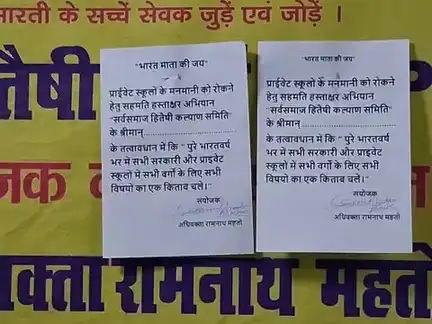 ारती के सच्चें सेवक जुड़ें एवं जोड़ें ।
तैषी
"भारत माता की जय"
प्राईवेट स्कूलों के मनमानी को रोकने
हेतु सहमति हस्ताक्षर अभियान
"सर्वसमाज हितेषी कल्याण समिति"
के श्रीमान्
के तत्वाधान में कि " पुरे भारतवर्ष
भर में सभी सरकारी और प्राइवेट
स्कूलों में सभी वर्गों के लिए सभी
विषयों का एक किताब चले।"
संयोजक
अधिवक्ता रामनाथ महतो
"भारत माता की जय"
प्राईवेट स्कूलों के मनमानी को रोकने
हेतु सहमति हस्ताक्षर अभियान
"सर्वसमाज हितेषी कल्याण समिति"
के श्रीमान्
के तत्वाधान में कि " पुरे भारतवर्ष
भर में सभी सरकारी और प्राइवेट
स्कूलों में सभी वर्गो के लिए सभी
विषयो का एक किताब चले।"
संयोजक
अधिवक्ता रामनाथ महतो
जक
वक्ता रामनाथ महत